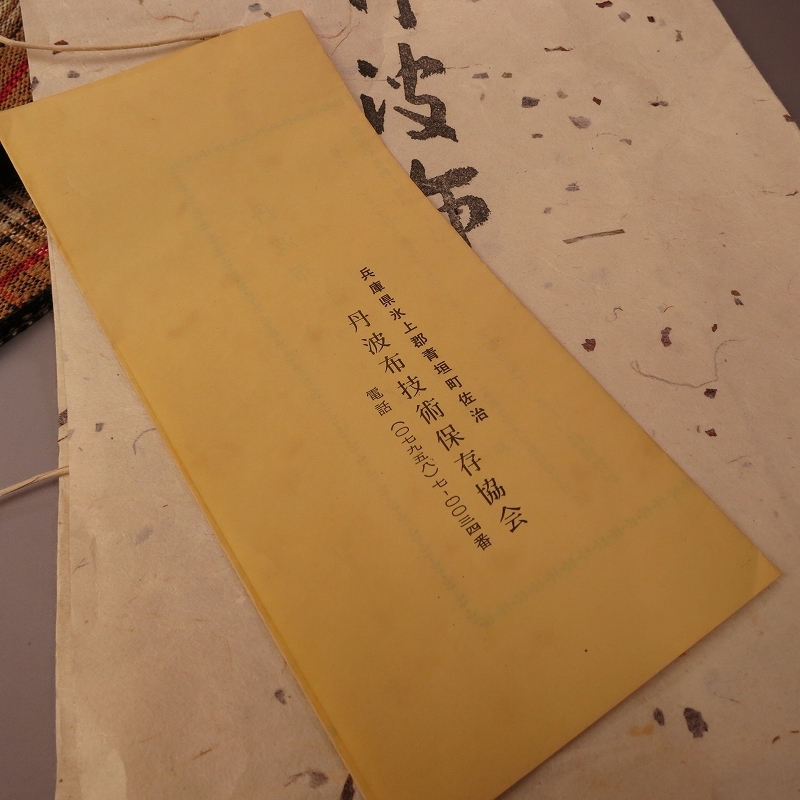 丹波布
兵庫県氷上郡青垣町佐治
丹波布技術保存協会
電話(〇七九五八)七-〇〇三四番